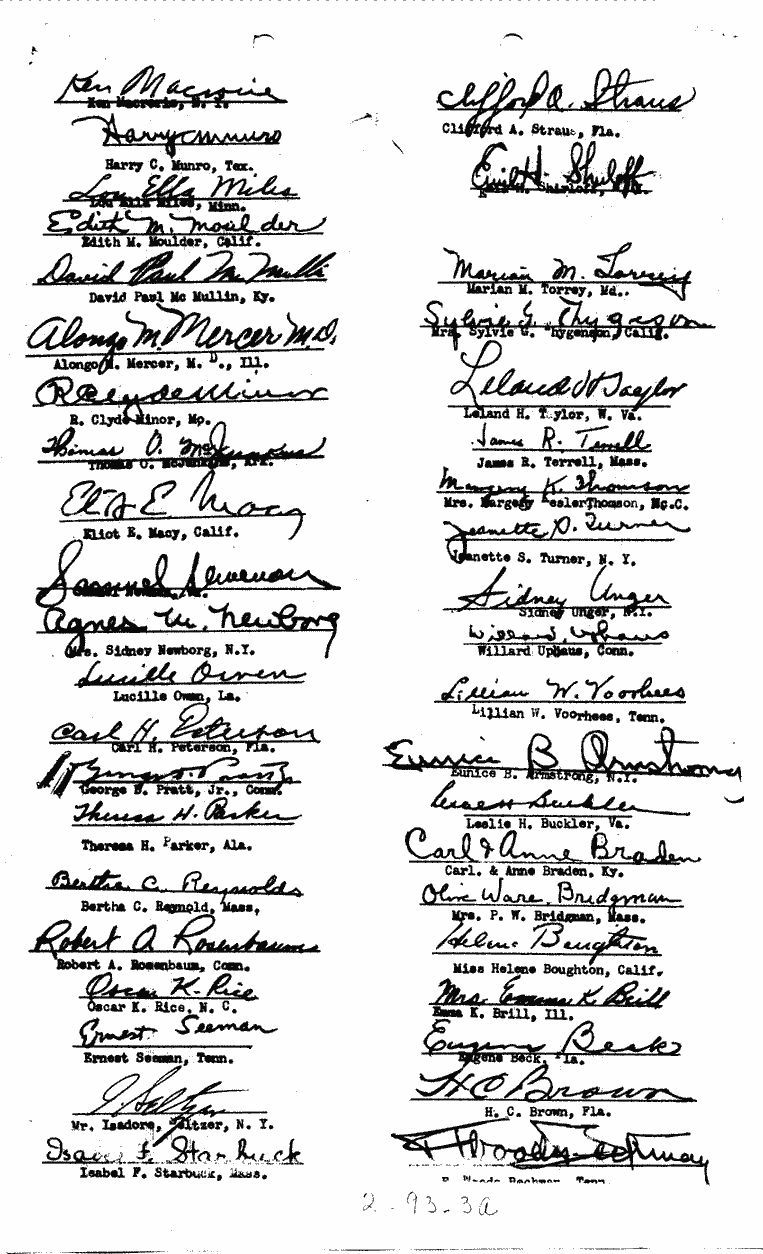 Ken Macrorie
Ken Macrorie, N. Y.
Harry C Munro
Harry C. Munro, Tex.
Lou Ella Miles
Lou Ella Miles, Minn.
Edith M. Moulder
Edith M. Moulder, Calif.
David Paul McMullin
David Paul Mc Mullin, Ky.
Alongo M. Mercer M.D.
Alongo M. Mercer, M. D., Ill.
R Clyde Minor
R. Clyde Minor, Mo.
Thomas O. McJunkins
Thomas O. McJunkins, Ark.
Eliot E Macy
Eliot E. Macy, Calif.
Samuel Newman
Agnes M. Newborg
Mrs. Sidney Newborg, N.Y.
Lucille Owen
Lucille Owen, La.
Carl H. Peterson
Carl H. Peterson, Fla.
George D. Pratt Jr
George D. Pratt, Jr., Conn.
Theresa H. Parker
Theresa H. Parker, Ala.
Bertha C. Reynolds
Bertha C. Reynold, Mass,
Robert A Rosenbaum
Robert A. Rosenbaum, Conn.
Oscar K. Rice
Oscar K. Rice, N. C.
Ernest Seeman
Ernest Seeman, Tenn.
I. Seltzer
Mr. Isadore, Seltzer, N. Y.
Isabel F. Starbuck
Isabel F. Starbuck, Mass.
Clifford A. Straus
Clifford A. Straus, Fla.
Emil H.
Marian M. Torrey
Marian M. Torrey, Md..
Sylvie G. Thygeson
Mrs. Sylvie G. Thygenson, Calif.
Leland H Taylor
Leland H. Taylor, W. Va.
James R. Terrell
James R. Terrell, Mass.
Margery K. Thomson
Mrs. Margery TeslerThomson, No.C.
Jeanette S. Turner
Jeanette S. Turner, N. Y.
Sidney Unger
Sidney Unger, N.Y.
Willard Uphaus
Willard Uphaus, Conn.
Lillian W. Voorhees
Lillian W. Voorhees, Tenn.
Eunice B Armstrong
Eunice B. Armstrong, N.Y.
Leslie H Buckler
Leslie H. Buckler, Va.
Carl & Anne Braden
Carl. & Anne Braden, Ky.
Olive Ware Bridgman
Mrs. P. W. Bridgman, Mass.
Helene Boughton
Miss Helene Boughton, Calif.
Mrs. Emma K. Brill
Emma K. Brill, Ill.
Eugene Beck
Eugene Beck, Fla.
H C Brown
H. C. Brown, Fla.
2 - 93 - 3a